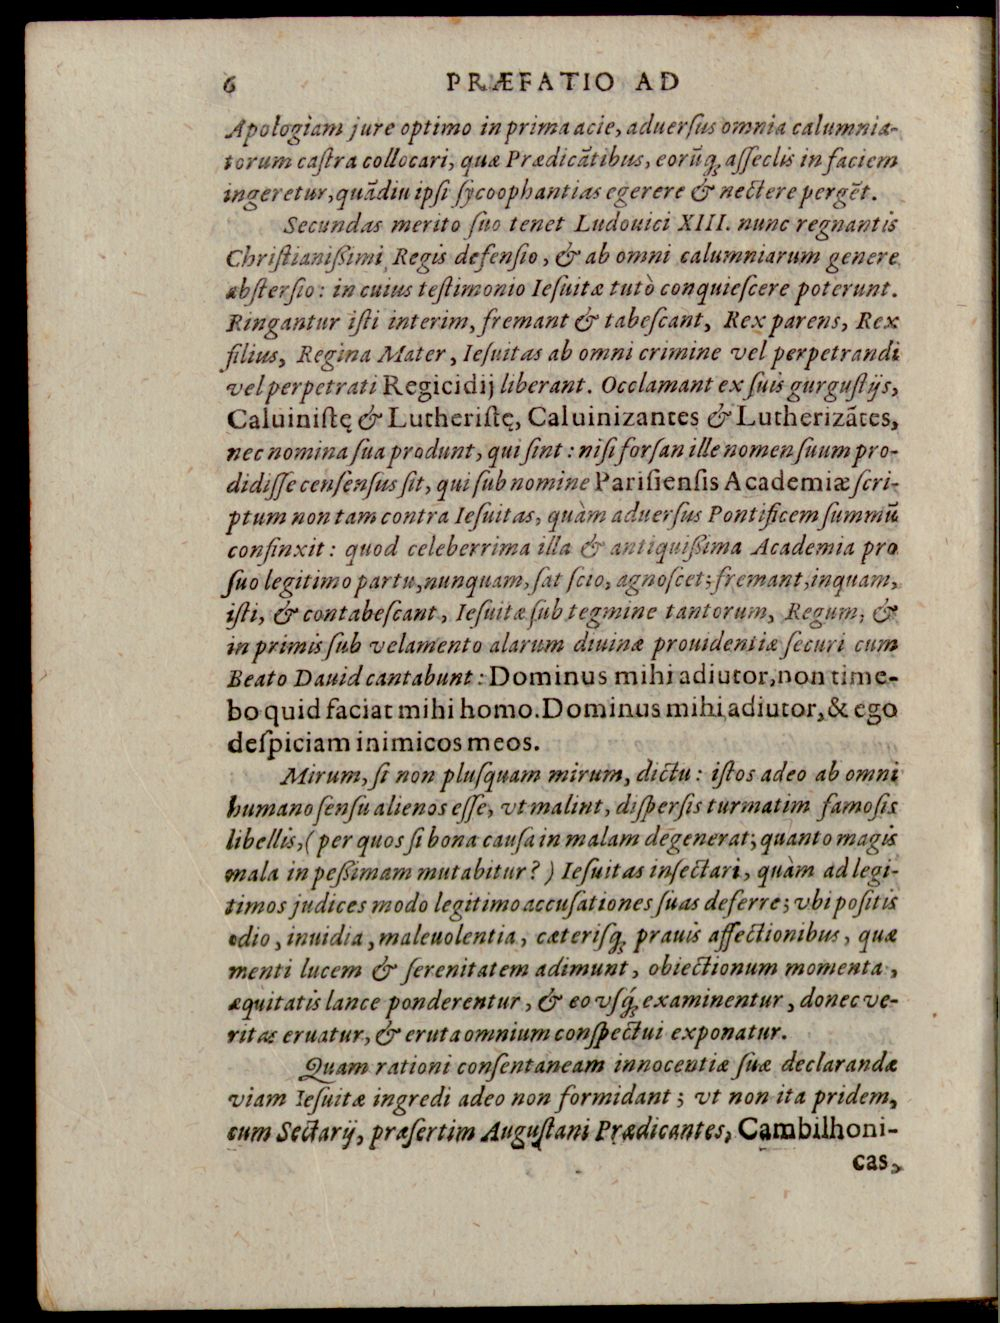 6 PRÆFATIO AD
Apologiam jure optimo in prima acie, aduerſus omnia calumnia-
torum caſtra collocari, quæ Prædicātibus, eorūq́ꝫ aſſeclis in faciem
ingeretur, quādiu ipſi ſycoophantias egerere & nectere pergēt.
Secundas merito ſuo tenet Ludouici XIII. nunc regnantis
Chriſtianißimi Regis defenſio, & ab omni calumniarum genere
abſterſio: in cuius teſtimonio Ieſuitæ tutò conquieſcere poterunt.
Ringantur iſti interim, fremant & tabeſcant, Rex parens, Rex
filius, Regina Mater, Ieſuitas ab omni crimine vel perpetrandi
vel perpetrati Regicidij liberant. Occlamant ex ſuis gurguſtijs,
Caluiniſtę & Lutheriſtę, Caluinizantes & Lutherizātes,
nec nomina ſua produnt, qui ſint: niſi forſan ille nomen ſuum pro-
didiſſe cenſenſus ſit, qui ſub nomine Pariſienſis Academiæ ſcri-
ptum non tam contra Ieſuitas, quàm aduerſus Pontificem ſummū
confinxit: quod celeberrima illa & antiquißima Academia pro
ſuo legitimo partu, nunquam, ſat ſcio, agnoſcet; fremant, inquam,
iſti, & contabeſcant, Ieſuitæ ſub tegmine tantorum, Regum, &
in primis ſub velamento alarum diuinæ prouidentiæ ſecuri cum
Beato Dauid cantabunt: Dominus mihi adiutor, non time-
bo quid faciat mihi homo. Dominus mihi adiutor, & ego
deſpiciam inimicos meos.
Mirum, ſi non pluſquam mirum, dictu: iſtos adeo ab omni
humano ſenſu alienos eſſe, vt malint, diſperſis turmatim famoſis
libellis, (per quos ſi bona cauſa in malam degenerat; quanto magis
mala in peßimam mutabitur?) Ieſuitas inſectari, quàm ad legi-
timos judices modo legitimo accuſationes ſuas deferre; vbi poſitis
odio, inuidia, maleuolentia, cæteriſq́ꝫ prauis affectionibus, quæ
menti lucem & ſerenitatem adimunt, obiectionum momenta,
æquitatis lance ponderentur, & eo vſq́ꝫ examinentur, donec ve-
ritas eruatur, & eruta omnium conſpectui exponatur.
Quam rationi conſentaneam innocentiæ ſuæ declarandæ
viam Ieſuitæ ingredi adeo non formidant; vt non ita pridem,
cum Sectarij, præſertim Auguſtani Prædicantes, Cambilhoni-
cas,